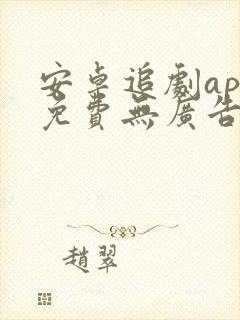 安卓追劇ap
免費無廣告
趙翠